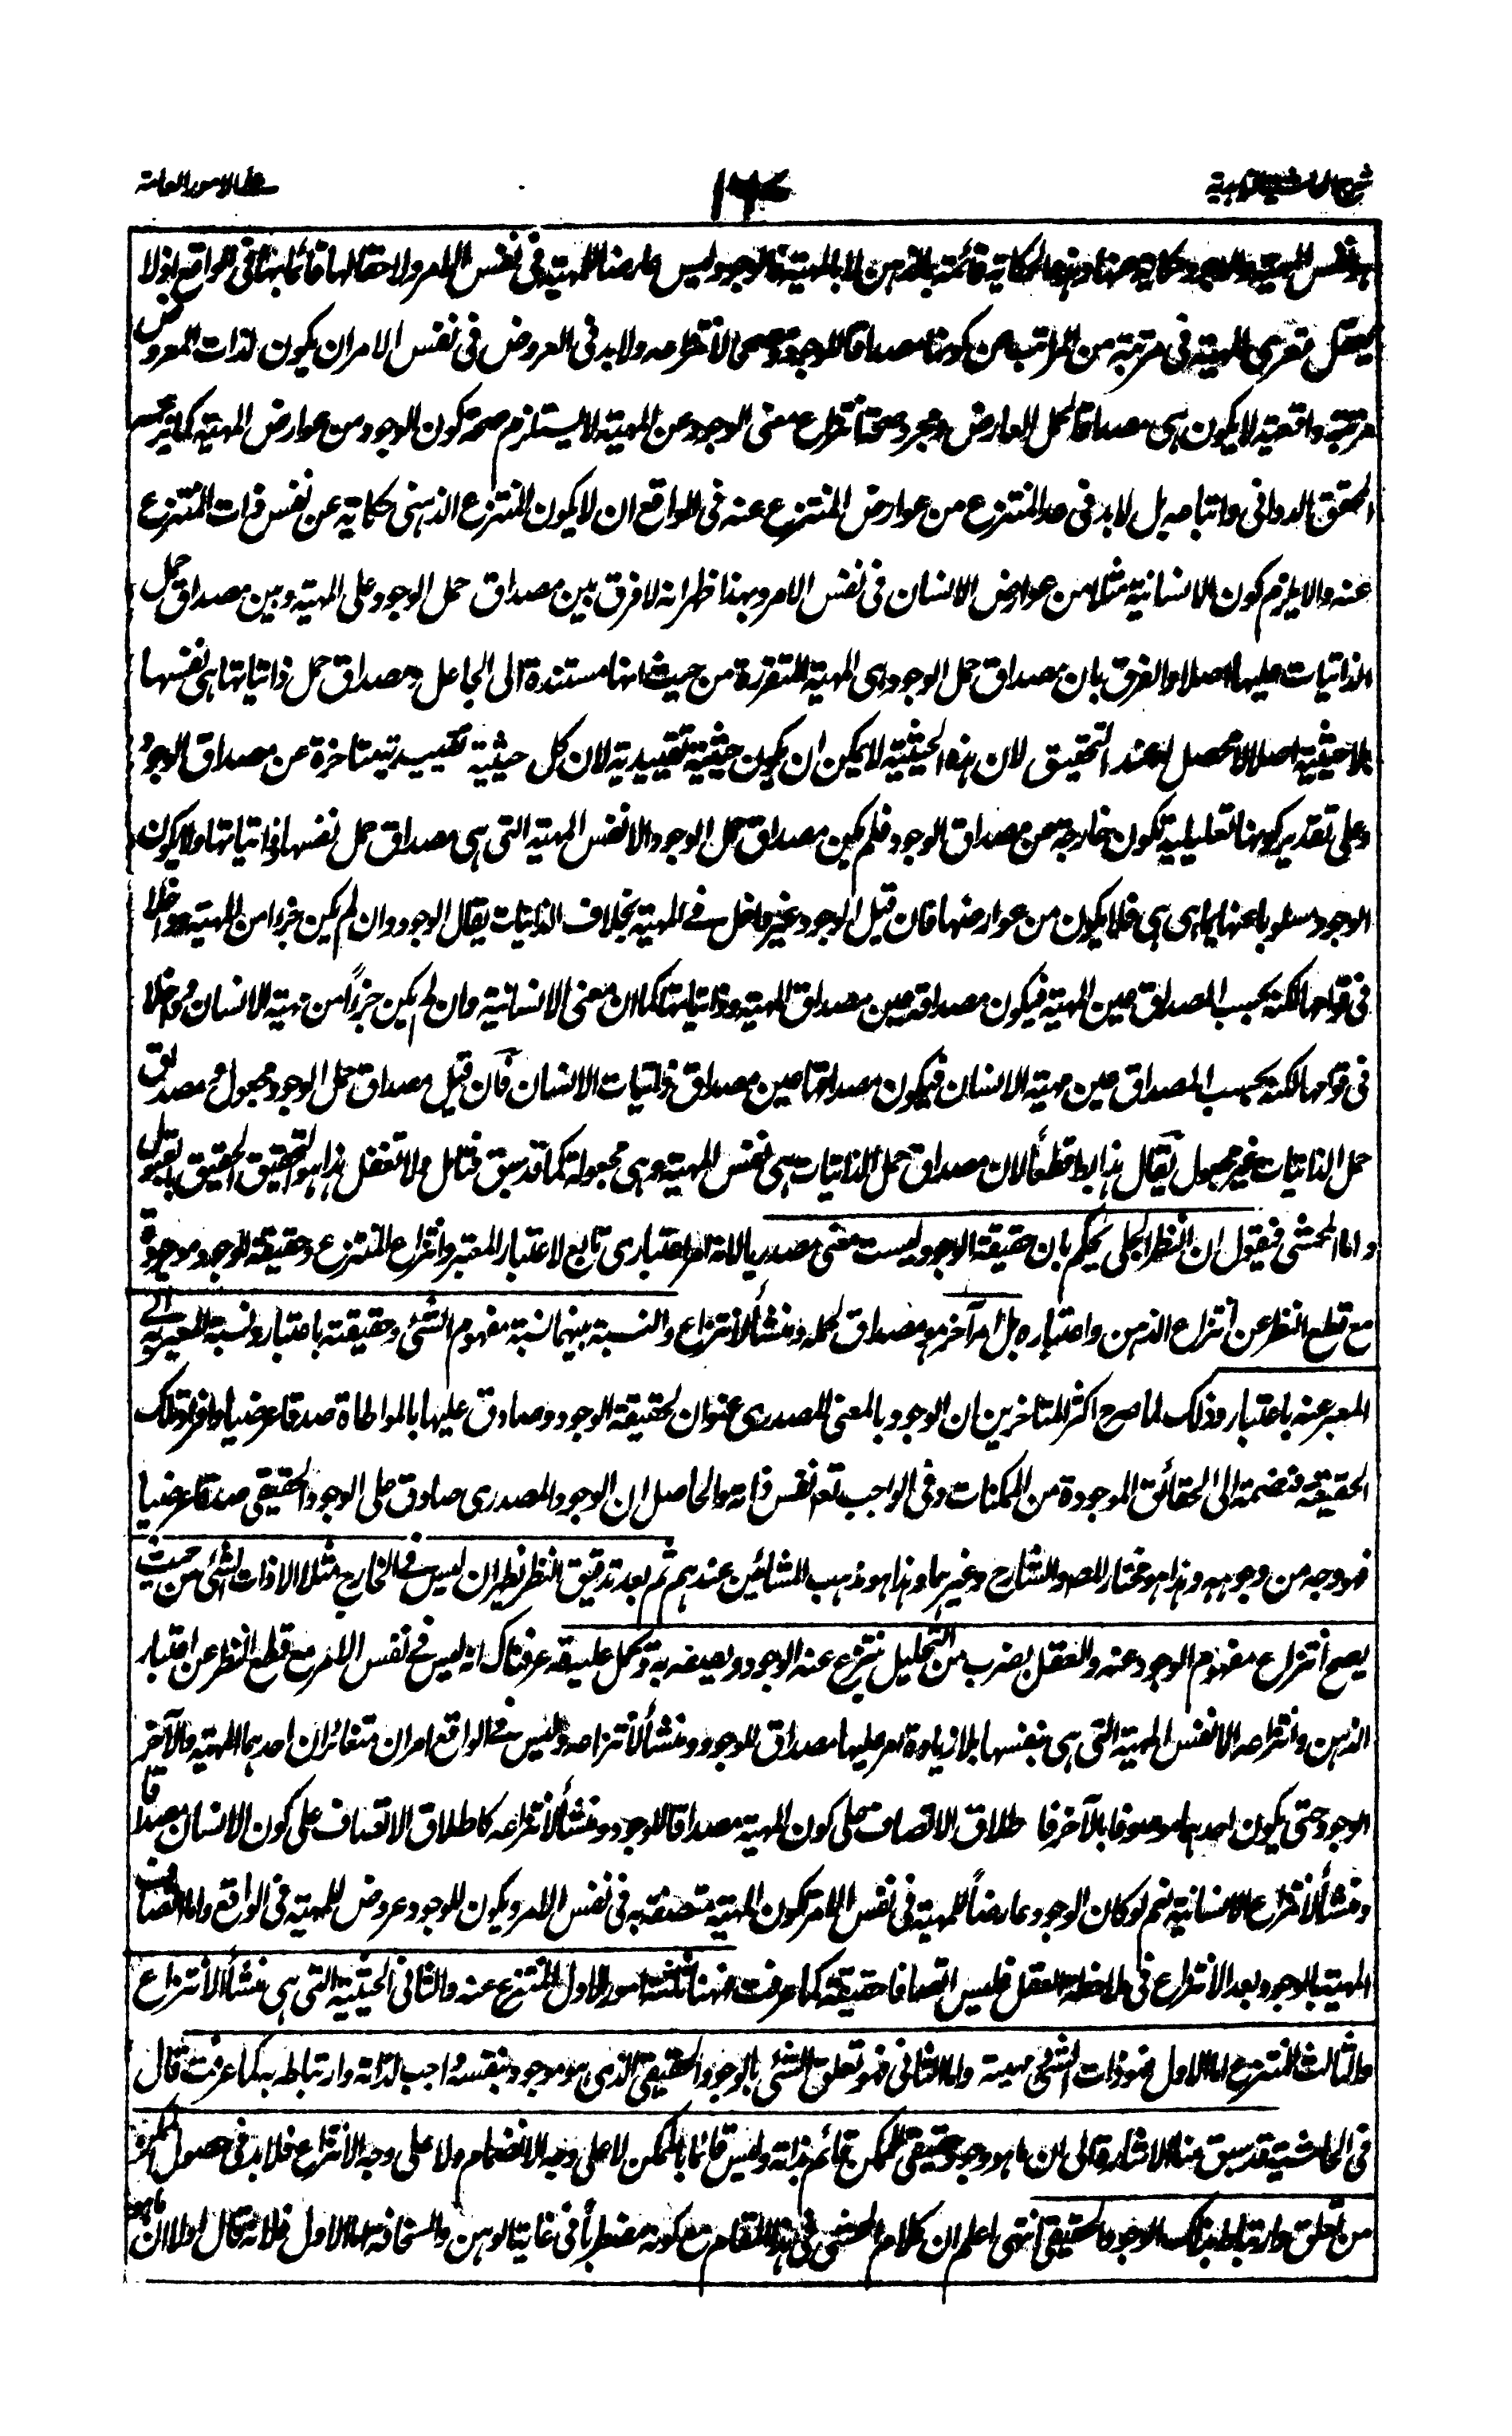 على الامور العامة
هو نفس المهية والوجود حكاية عنها وهذه الحكاية قائمة بالذهن لا بالمهية فالوجود ليس عارضا للمهية في نفس الامر ولاحقا لها قائما بها في الواقع اذ لا
يعقل تعرى المهية في مرتبة من المراتب عن كونها مصداقا للوجود ومصححا لانتزاعه ولا بد في العروض في نفس الامر ان يكون لذات المعروض
مرتبة واقعية لا يكون هي مصداقا لحمل العارض ومجرد صحة انتزاع معنى الوجود عن المهية لا يستلزم صحة كون الوجود من عوارض المهية كما زعمه
المحقق الدواني واتباعه بل لا بد في عد المنتزع من عوارض المنتزع عنه في الواقع ان لا يكون المنتزع الذهني حكاية عن نفس ذات المنتزع
عنه والا يلزم كون الانسانية مثلا من عوارض الانسان في نفس الامر وبهذا ظهر انه لا فرق بين مصداق حمل الوجود على المهية وبين مصداق حمل
الذاتيات عليها اصلا والفرق بان مصداق حمل الوجود هي المهية المتقررة من حيث انها مستندة الى الجاعل ومصداق حمل ذاتياتها هي نفسها
بلا حيثية اصلا لا محصل له عند التحقيق لان هذه الحيثية لا يمكن ان يكون حيثية تقييدية لان كل حيثية تقييدية متاخرة عن مصداق الوجود
وعلى تقدير كونها تعليلية تكون خارجة عن مصداق الوجود فلم يكن مصداق حمل الوجود الا نفس المهية التي هي مصداق حمل نفسها وذاتياتها ولا يكون
الوجود مسلوبا عنها بما هي هي فلا يكون من عوارضها فان قيل الوجود غير داخل في المهية بخلاف الذاتيات يقال الوجود وان لم يكن جزءا من المهية وداخلا
في قوامها لكنه بحسب المصداق عين المهية فيكون مصداقه عين مصداق المهية وذاتياتها كما ان معنى الانسانية وان لم يكن جزءاً من مهية الانسان وداخلا
في قوامها لكنه بحسب المصداق عين مهية الانسان فيكون مصداقها عين مصداق ذاتيات الانسان فان قيل مصداق حمل الوجود مجعول ومصداق
حمل الذاتيات غير مجعول يقال هذا باطل قطعاً لان مصداق حمل الذاتيات هي نفس المهية وهي مجعولة كما قد سبق فتامل ولا تغفل هذا هو التحقيق الحقيق بالقبول
واما المحشي فيقول ان النظر الجلي يحكم بان حقيقة الوجود ليست معنى مصدريا لانه امر اعتباري تابع لاعتبار المعتبر وانتزاع المنتزع وحقيقة الوجود موجودة
مع قطع النظر عن انتزاع الذهن واعتباره بل امر آخر هو مصداق لحمله ومنشأ لانتزاع والنسبة بينهما نسبة مفهوم الشئ وحقيقته باعتبار ونسبة المعبر به الى
المعبر عنه باعتبار وذلك لما صرح اكثر المتاخرين ان الوجود بالمعنى المصدري عنوان لحقيقة الوجود وصادق عليها بالمواطاة صدقا عرضيا وافراد تلك
الحقيقة منضمة الى الحقائق الموجودة من الممكنات وفي الواجب تعم نفس ذاته والحاصل ان الوجود المصدري صادق على الوجود الحقيقي صدقا عرضيا
فهو وجه من وجوهه وهذا هو مختار المصـ والشارح وغيرهما وهذا هو مذهب المشائين عندهم ثم بعد تدقيق النظر يظهر ان ليس في الخارج مثلا الا ذات الشئ من حيث
يصح انتزاع مفهوم الوجود عنه والعقل بضرب من التحليل ينتزع عنه الوجود ويصفه به ويحمل عليه قد عرفناك انه ليس في نفس الامر مع قطع النظر عن اعتبار
الذهن وانتزاعه الا نفس المهية التي هي بنفسها بلا زيادة امر عليها مصداق للوجود ومنشأ لانتزاعه وليس في الواقع امران متغائران احدهما المهية والآخر
الوجود حتى يكون احدهما موصوفا بالآخر فاطلاق الاتصاف على كون المهية مصداقا للوجود ومنشأ لانتزاعه كاطلاق الاتصاف على كون الانسان مصداقا
ومنشأ لانتزاع الانسانية نعم لو كان الوجود عارضاً للمهية في نفس الامر تكون المهية متصفة به في نفس الامر ويكون للوجود عروض للمهية في الواقع واما اتصاف
المهية بالوجود بعد الانتزاع في ملاحظة العقل فليس اتصافا حقيقة كما عرفت فههنا ثلثة امور الاول المنتزع عنه والثاني الحيثية التي هي منشأ الانتزاع
والثالث المنتزع اما الاول فهو ذات الشئ مهية واما الثاني فهو تعلق الشئ بالوجود الحقيقي الذي هو موجود بنفسه واجب لذاته وارتباطه به كما عرفت قال
في الحاشية قد سبق منا الاشارة الى ان ما هو وجود حقيقي للممكن قائم بذاته وليس قائما بالممكن لا على وجه الانضمام ولا على وجه الانتزاع فلا بد في حصول
من تعلق وارتباط بذلك الوجود الحقيقي انتهى اعلم ان كلام المحشي في هذا المقام مع كونه مضطربا في غاية الوهن والسخافة اما الاول فلانه قال اولا ان